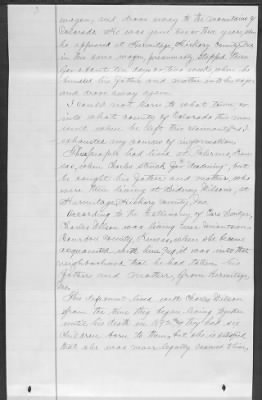 3
wagon, and drove away to the mountains of
Colorado. He was gone one or two years, when
he appeared at Hermitage, Hickory County, Mo
in this same wagon, presumably, stopped there
for about ten days or two weeks, when he
bundled his father and mother into his wagon
and drove away again.
I could not learn to what town or
into what county of Colorado this man
went when he left this claimant, and I
exhausted my sources of information.
These people had lived at
when Charles Wilson
he sought his father and mother, who
were then living at Wilson's, at
Hermitage, Hickory County, Mo.
According to the testimony of
Charles Wilson was living near
Bourbon County, Kansas, when she became
acquainted with him, he, it was into that
neighborhood that he had taken his
father and mother from Hermitage,
Mo.
This deponent lived with Charles Wilson
from the time they began living together
until his death in they had six
children born to them, but she is satisfied
that she was never legally married to him,